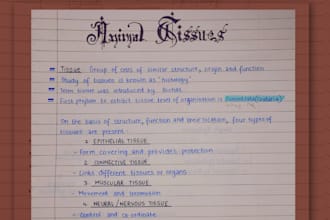 Animal Tissues
Tissue Group of cells of similar structure, origin and function
Study of tissues is known as 'histology'
Term tissue was introduced by Bichat
First phylum to exhibit tissue level of organisation is
On the basis of structure, function and their location, four types of
tissues are present:
1 EPITHELIAL TISSUE
- Form covering and provides protection
2 CONNECTIVE TISSUE
- Links different tissues or organs
3 MUSCULAR TISSUE
- Movement and locomotion
4 NEURAL / NERVOUS TISSUE
- Control and co ordinate